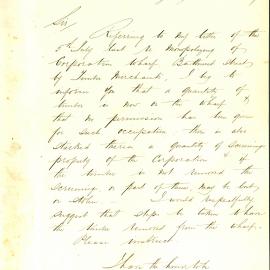 Sir,
Referring to my letter of the
5th July last re Monopolying of
Corporation Wharf Bathurst Street
by Timber Merchants, I beg to
inform you that a quantity of
timber is now on the wharf &
that no permission has been given
for such occupation, there is also
stacked therein a quantity of Screenings
property of the Corporation & if
the timber is not removed the
Screenings, or part of them, may be lost
or stolen. I would respectfully
suggest that steps be taken to have
the timber removed from the wharf.
Please instruct
I have the honor to be